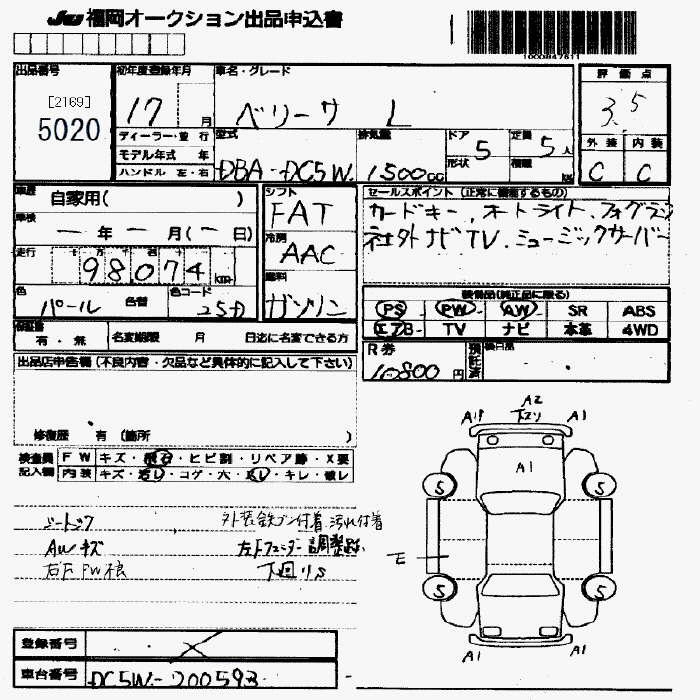 JU 福岡オークション出品申込書
1000847811
出品番号
[2169]
5020
初年度登録年月
17 月
車名・グレード
ベリーサ L
評価点
3.5
外装 内装
C C
ディーラー・並行
モデル年式 年
ハンドル 左・右
型式
DBA-DC5W
排気量
1500cc
ドア 5
形状
定員 5人
積載 kg
車歴
自家用( )
車検
一年一月(一日)
走行
98074km
色
パール
色替
色コード
25D
シフト
FAT
冷房
AAC
燃料
ガソリン
セールスポイント (正常に機能するもの)
カードキー、オートライト、フォグラン
社外ナビTV、ミュージックサーバー
装備品(純正品に限る)
PS PW AW SR ABS
エアB TV ナビ 本革 4WD
保証書
有・無
名変期限 月 日迄に名変できる方
R券
10800円
預託済
欠品
出品店申告欄(不良内容・欠品など具体的に記入して下さい)
修復歴 有 (箇所 )
検査員記入欄
FW キズ・飛石・ヒビ割・リペア跡・X要
内装 キズ・汚レ・コゲ・穴・スレ・キレ・破レ
シートスレ
AWキズ
外装鉄プン付着 汚れ付着
左Fフェンダー調整跡
下廻りS
A2
下スリ
A1P A1
A1
S S
E
S S
A1 A1
登録番号
車台番号 DC5W-200593